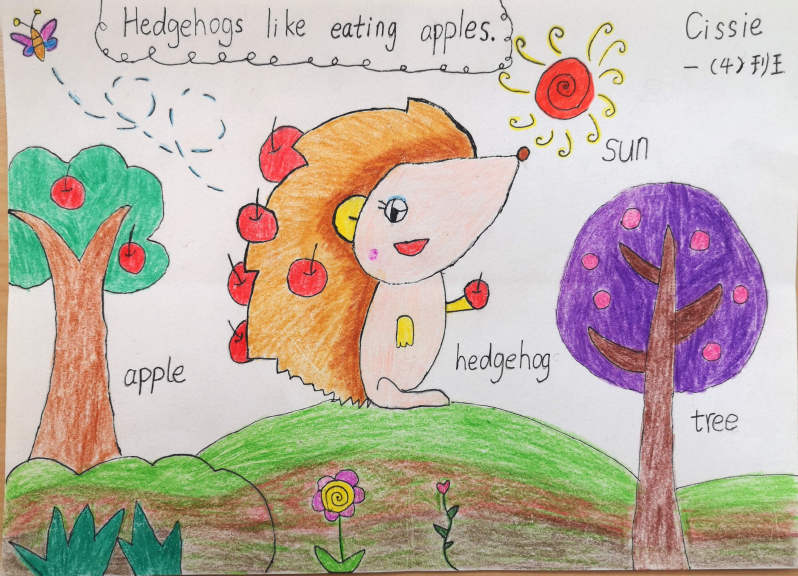 Hedgehogs like eating apples.
Cissie
一(4)班
sun
apple
hedgehog
tree